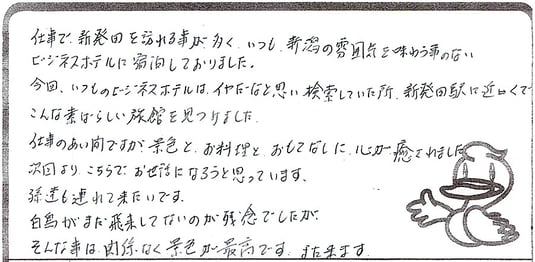 仕事で、新発田を訪れる事が多く、いつも、新潟の雰囲気を味わう事のない
ビジネスホテルに宿泊しておりました。
今回、いつものビジネスホテルは、イヤだなと思い検索していた所、新発田駅に近くて
こんな素ばらしい旅館を見つけました。
仕事のあい間ですが景色と、お料理と、おもてなしに、心が癒されました
次回より、こちらで、お世話になろうと思っています。
孫達も連れて来たいです。
白鳥がまだ飛来してないのが残念でしたが、
そんな事は、関係なく景色が最高です。また来ます。